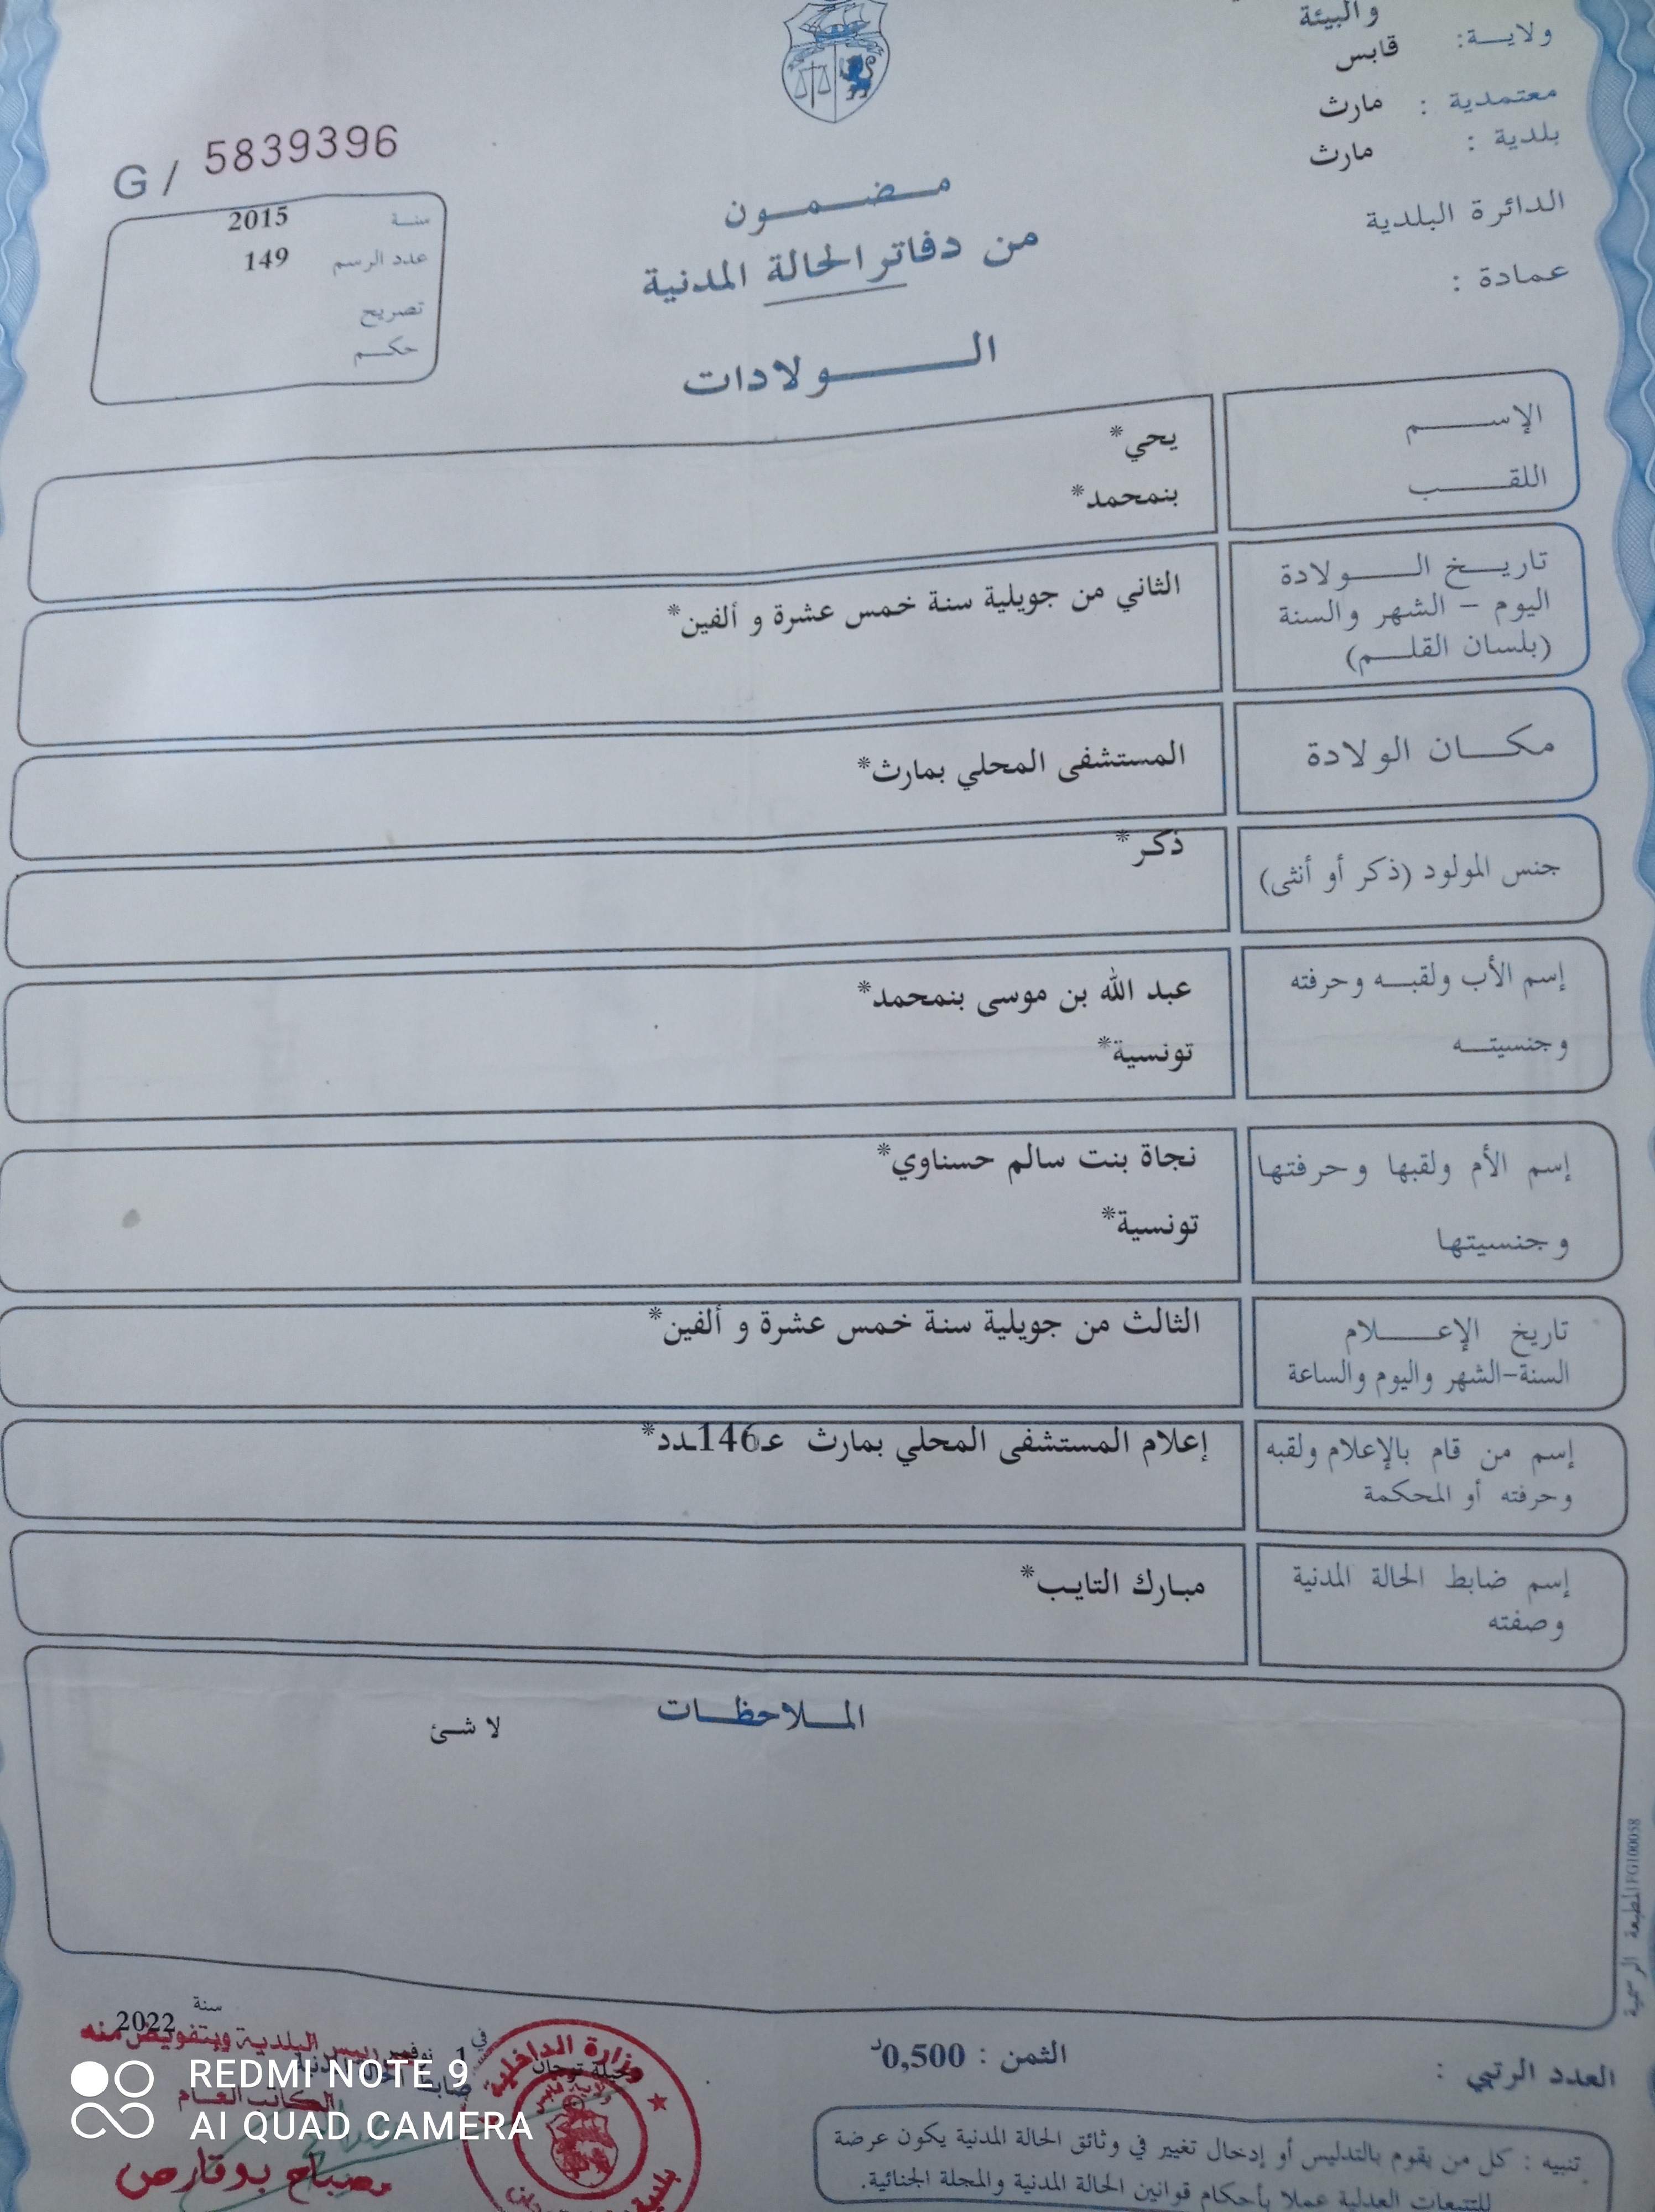 والبيئة
ولايـــة: قابس
معتمدية : مارث
بلدية : مارث
الدائرة البلدية
عمادة :
G / 5839396
سنة 2015
عدد الرسم 149
تصريح
حكم
مضمون
من دفاتر الحالة المدنية
الولادات
الإسم يحي*
اللقب بنمحمد*
تاريخ الولادة
اليوم – الشهر والسنة
(بلسان القلم)
الثاني من جويلية سنة خمس عشرة و ألفين*
مكان الولادة المستشفى المحلي بمارث*
جنس المولود (ذكر أو أنثى) ذكر*
إسم الأب ولقبه وحرفته عبد الله بن موسى بنمحمد*
وجنسيته تونسية*
إسم الأم ولقبها وحرفتها نجاة بنت سالم حسناوي*
وجنسيتها تونسية*
تاريخ الإعلام الثالث من جويلية سنة خمس عشرة و ألفين*
السنة-الشهر واليوم والساعة
إسم من قام بالإعلام ولقبه إعلام المستشفى المحلي بمارث عـ146ـدد*
وحرفته أو المحكمة
إسم ضابط الحالة المدنية مبارك التايب*
وصفته
الملاحظات
لا شئ
المطبعة الرسمية
العدد الرتبي :
الثمن : 0,500د
تنبيه : كل من يقوم بالتدليس أو إدخال تغيير في وثائق الحالة المدنية يكون عرضة
للتتبعات العدلية عملا بأحكام قوانين الحالة المدنية والمجلة الجنائية.
في 1 نوفمبر سنة 2022
رئيس البلدية وبتفويض منه
الكاتب العام
مصباح بوقارص
وزارة الداخلية
REDMI NOTE 9
AI QUAD CAMERA